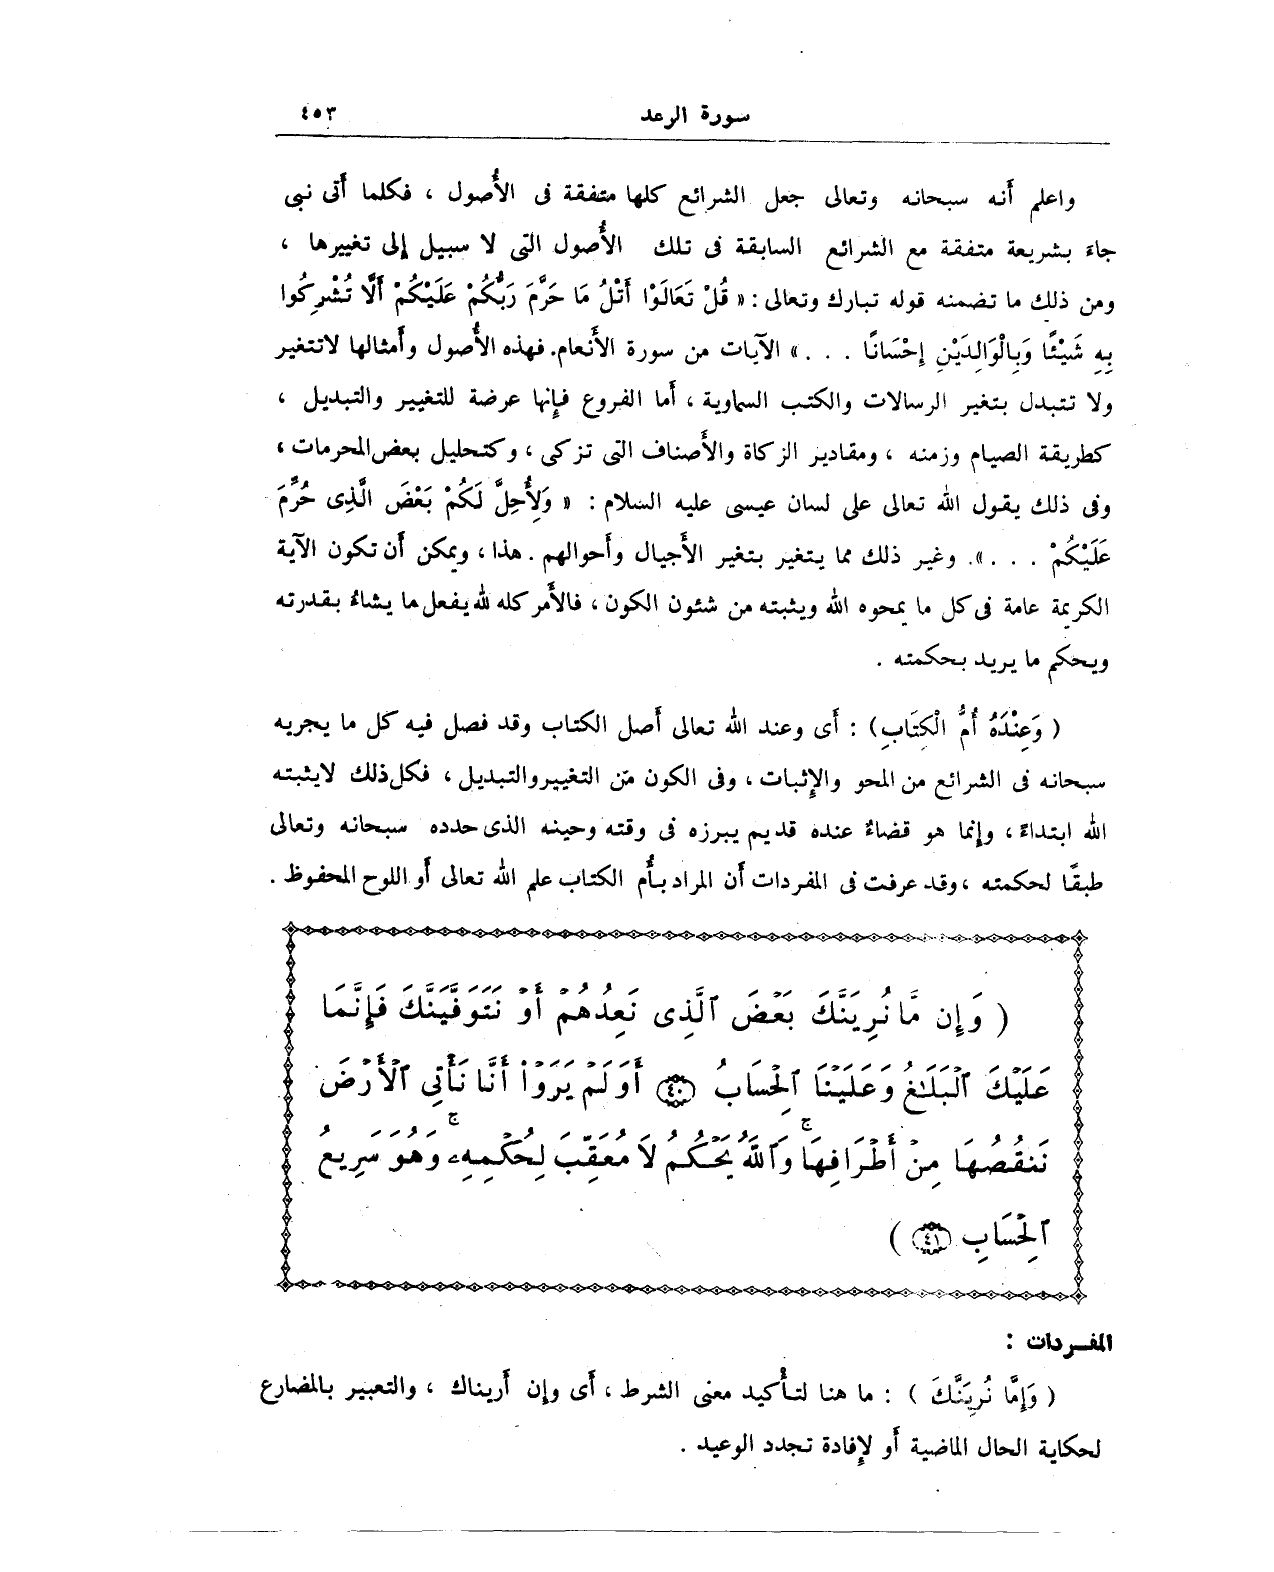 سورة الرعد ٤٥٣
واعلم أنه سبحانه وتعالى جعل الشرائع كلها متفقة فى الأُصول ، فكلما أتى نبى
جاءَ بشريعة متفقة مع الشرائع السابقة فى تلك الأُصول التى لا سبيل إلى تغييرها ،
ومن ذلك ما تضمنه قوله تبارك وتعالى : « قُلْ تَعَالَوْا أَتْلُ مَا حَرَّمَ رَبُّكُمْ عَلَيْكُمْ أَلَّا تُشْرِكُوا
بِهِ شَيْئًا وَبِالْوَالِدَيْنِ إِحْسَانًا . . . » الآيات من سورة الأنعام. فهذه الأُصول وأمثالها لاتتغير
ولا تتبدل بتغير الرسالات والكتب السماوية ، أما الفروع فإنها عرضة للتغيير والتبديل ،
كطريقة الصيام وزمنه ، ومقادير الزكاة والأصناف التى تزكى ، وكتحليل بعض المحرمات ،
وفى ذلك يقول الله تعالى على لسان عيسى عليه السلام : « وَلِأُحِلَّ لَكُمْ بَعْضَ الَّذِى حُرِّمَ
عَلَيْكُمْ . . . ». وغير ذلك مما يتغير بتغير الأجيال وأحوالهم . هذا ، ويمكن أن تكون الآية
الكريمة عامة فى كل ما يمحوه الله ويثبته من شئون الكون ، فالأمر كله لله يفعل ما يشاءُ بقدرته
ويحكم ما يريد بحكمته .
( وَعِنْدَهُ أُمُّ الْكِتَابِ ) : أى وعند الله تعالى أصل الكتاب وقد فصل فيه كل ما يجريه
سبحانه فى الشرائع من المحو والإثبات ، وفى الكون من التغيير والتبديل ، فكل ذلك لايثبته
الله ابتداءً ، وإنما هو قضاءٌ عنده قديم يبرزه فى وقته وحينه الذى حدده سبحانه وتعالى
طبقًا لحكمته ، وقد عرفت فى المفردات أن المراد بأُم الكتاب علم الله تعالى أو اللوح المحفوظ .
( وَإِن مَّا نُرِيَنَّكَ بَعْضَ ٱلَّذِى نَعِدُهُمْ أَوْ نَتَوَفَّيَنَّكَ فَإِنَّمَا
عَلَيْكَ ٱلْبَلَـٰغُ وَعَلَيْنَا ٱلْحِسَابُ ﴿٤٠﴾ أَوَلَمْ يَرَوْاْ أَنَّا نَأْتِى ٱلْأَرْضَ
نَنقُصُهَا مِنْ أَطْرَافِهَا ۚ وَٱللَّهُ يَحْكُمُ لَا مُعَقِّبَ لِحُكْمِهِۦ ۚ وَهُوَ سَرِيعُ
ٱلْحِسَابِ ﴿٤١﴾ )
المفـردات :
( وَإِمَّا نُرِيَنَّكَ ) : ما هنا لتأْكيد معنى الشرط ، أى وإن أريناك ، والتعبير بالمضارع
لحكاية الحال الماضية أو لإفادة تجدد الوعيد .